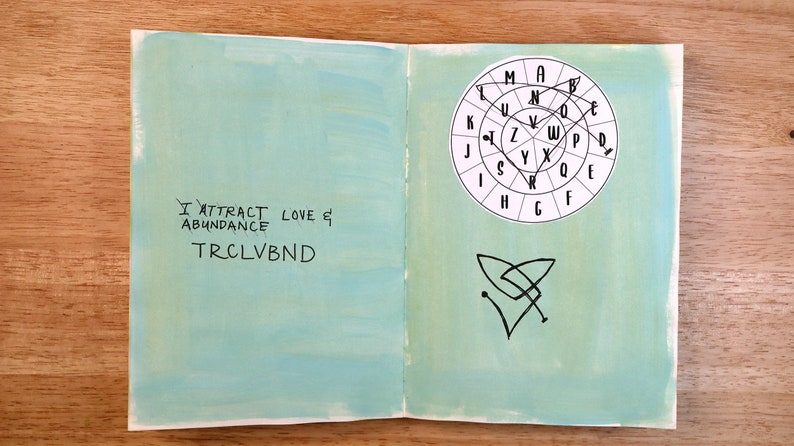 I ATTRACT LOVE &
ABUNDANCE
TRCLVBND
A B C D E F G H I J K L M
N O P Q R S T U
V W X Y Z